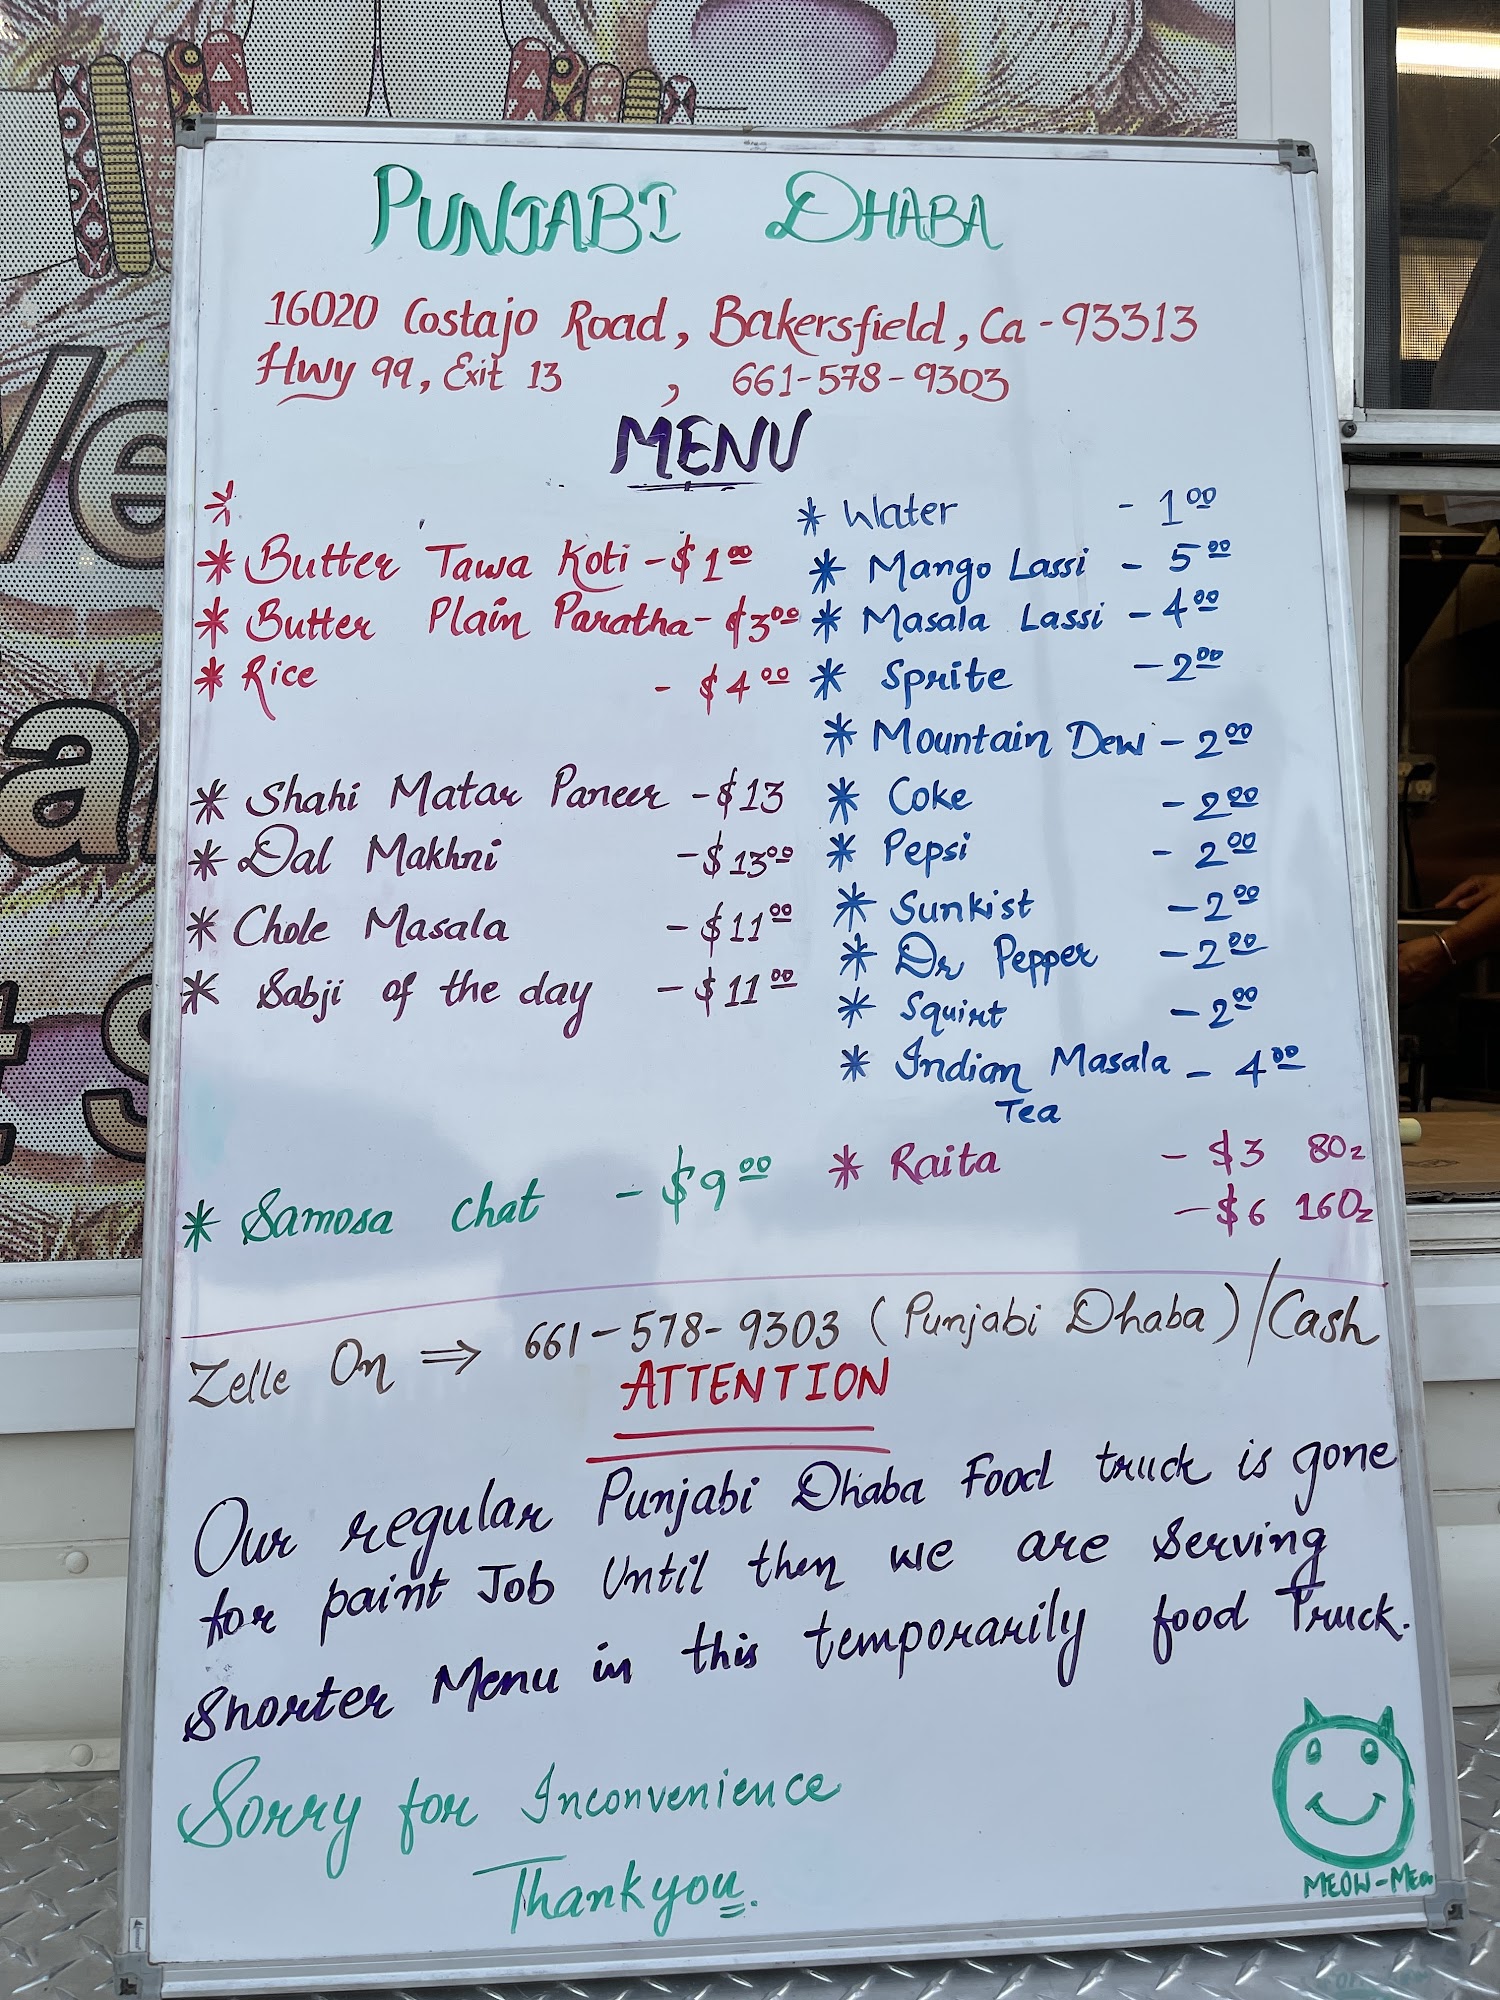 PUNJABI DHABA
16020 Costajo Road, Bakersfield, Ca - 93313
Hwy 99, Exit 13 , 661-578-9303
MENU
*
* Butter Tawa Roti - $1.00
* Butter Plain Paratha - $3.00
* Rice - $4.00
* Shahi Matar Paneer - $13
* Dal Makhni - $13.00
* Chole Masala - $11.00
* Sabji of the day - $11.00
* Samosa chat - $9.00
* Water - 1.00
* Mango Lassi - 5.00
* Masala Lassi - 4.00
* Sprite - 2.00
* Mountain Dew - 2.00
* Coke - 2.00
* Pepsi - 2.00
* Sunkist - 2.00
* Dr Pepper - 2.00
* Squirt - 2.00
* Indian Masala - 4.00
Tea
* Raita - $3 8Oz
- $6 16Oz
Zelle On ⇒ 661-578-9303 (Punjabi Dhaba) / Cash
ATTENTION
Our regular Punjabi Dhaba Food truck is gone
for paint Job Until then we are Serving
Shorter Menu in this temporarily food Truck.
Sorry for Inconvenience
Thank you.
MEOW-MEOW